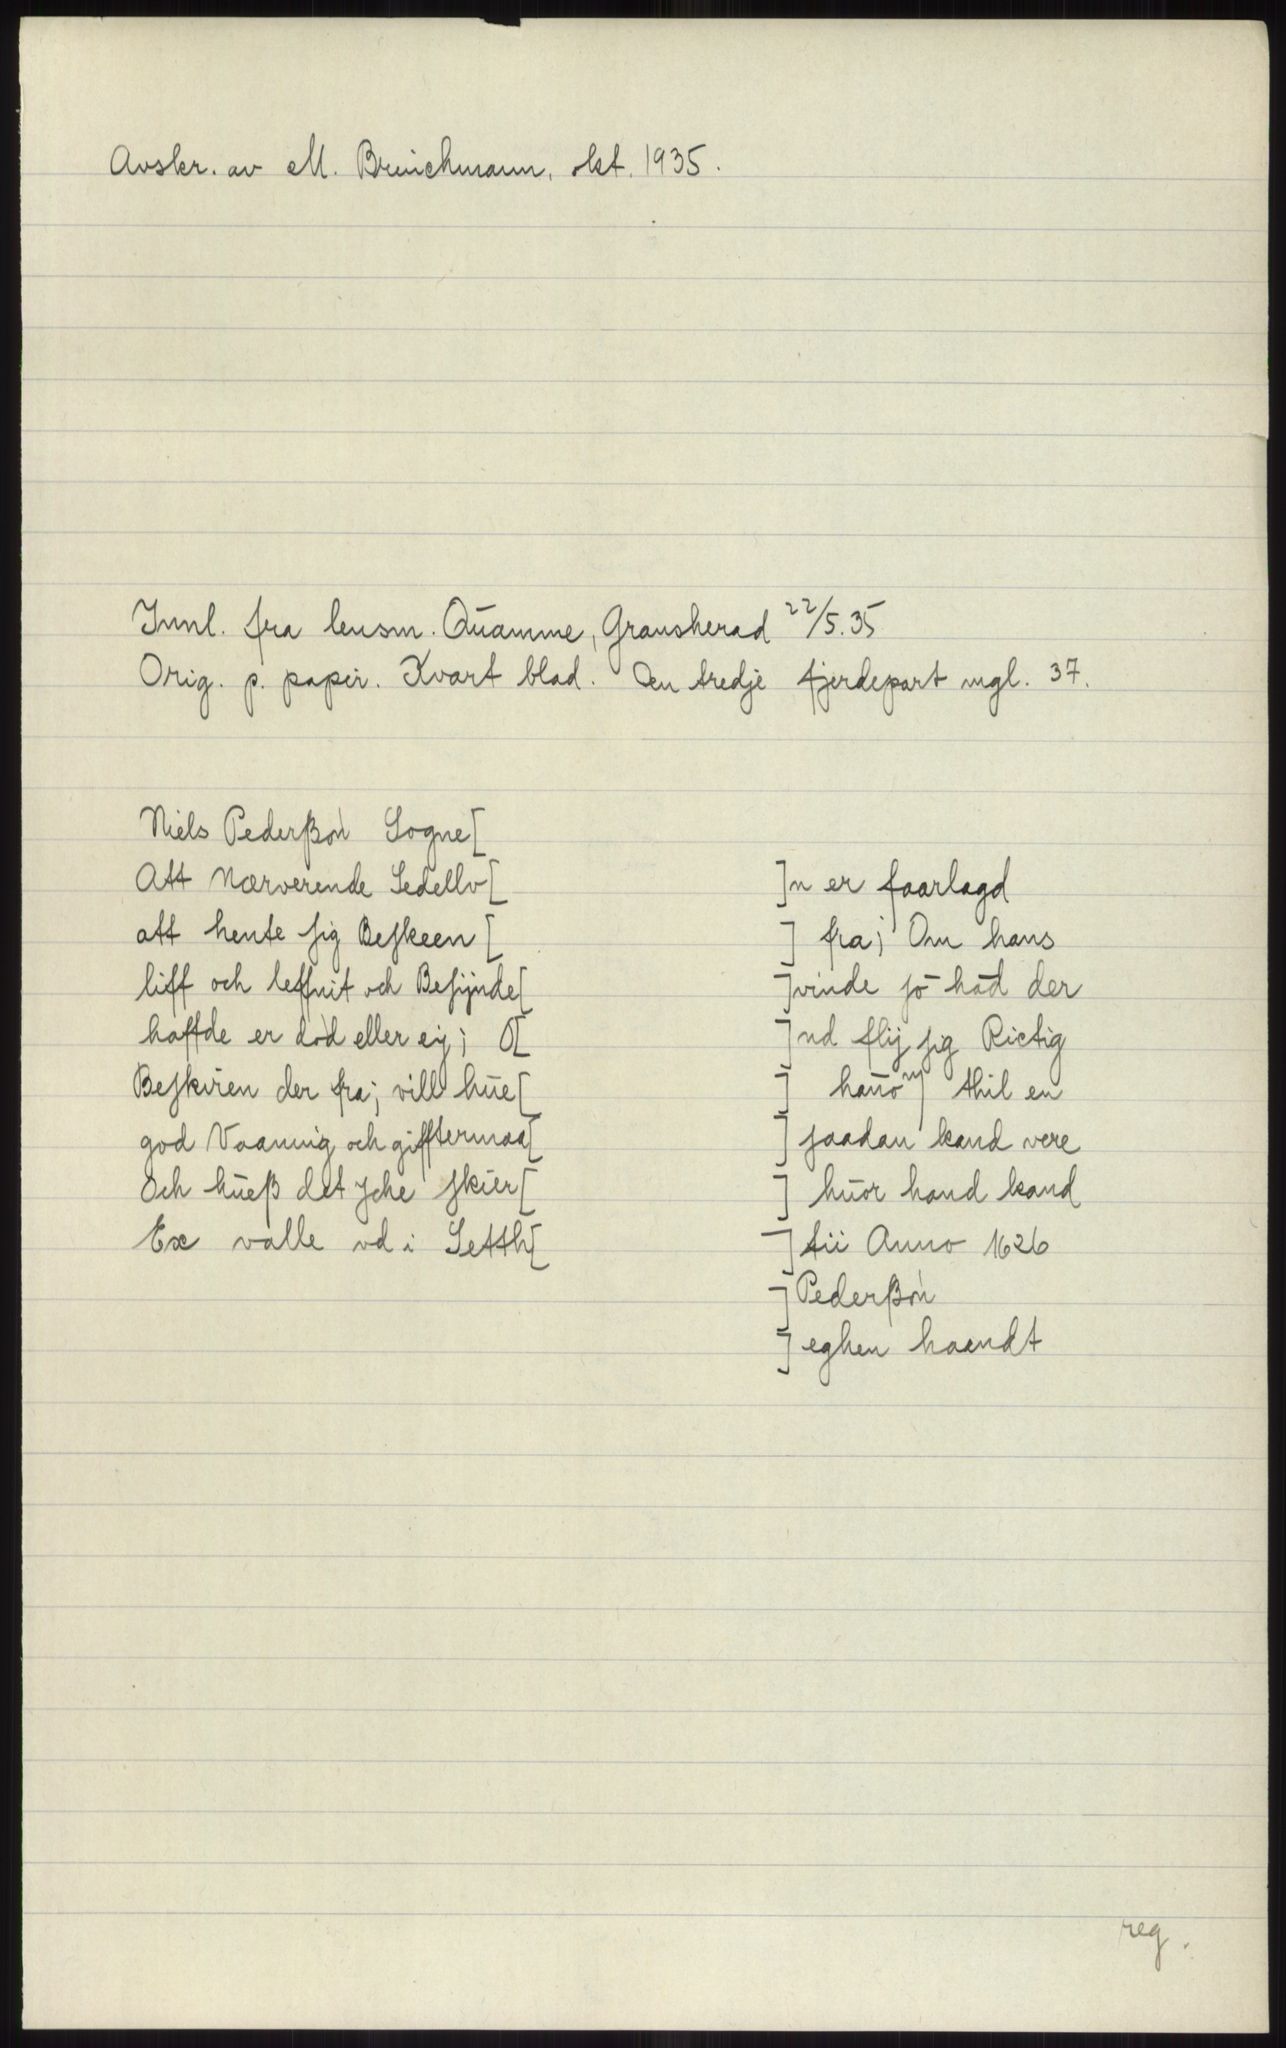 Avskr. av M. Brinchmann, okt. 1935.
Innl. fra lensm. Quamme, Gransherad 22/5.35
Orig. p. papir. Kvart blad. Den tredje fjerdepart mgl. 37.
Niels Pederßøn Sogne[
Att Nærverende Sedellv[ ]n er faarlagd
att hente sig Beskeen [ ] fra; Om hans
liff och leffnit och Besijnde[ ]vinde so had der
haffde er død eller eij; O[ ]nd flij sig Rictig
Beskvien der fra; vill hue[ ] hanom thil en
god Vaaning och gifftermaa[ ] saadan kand vere
Och hueß det Jche skier[ ] huor hand kand
Ex valle vd i Setth[ ]tii Anno 1626
]Pederßøn
] eghen haandt
reg.